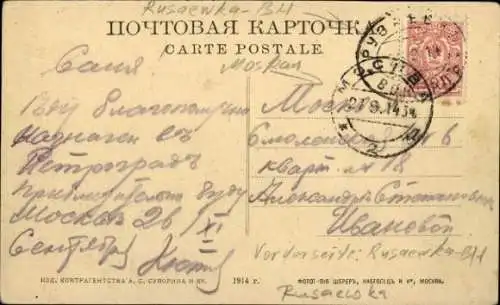 Rusaewka-BH
ПОЧТОВАЯ КАРТОЧКА
CARTE POSTALE
Moskau
Саня
Еду благополучно
назначен въ
Петроградъ
приблизительно буду
Москва 26
Сентября
Москва
Смоленский
кварт. № 18
Александръ Степановнъ
Ивановой
МОСКВА
27.9.14
2
Vorderseite: Rusaewka-BH
ИЗД. КОНТРАГЕНТСТВА А. С. СУВОРИНА И Кº.
1914 г.
ФОТОТ-ІЯ ШЕРЕРЪ, НАБГОЛЬЦЪ И Кº, МОСКВА.
Rusaewka